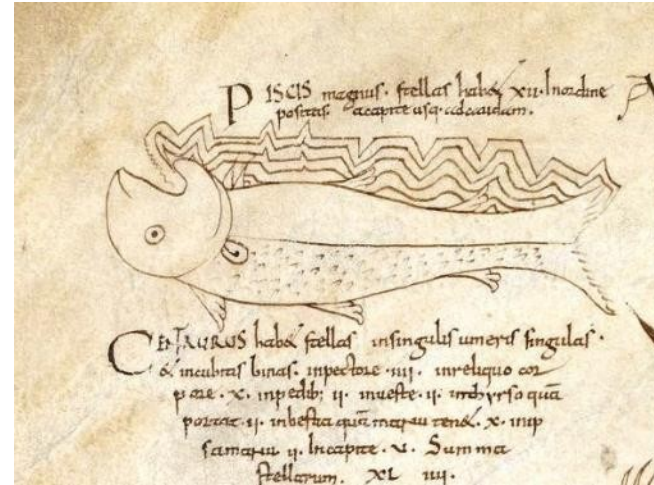 PISCIS magnus. stellas habet xii. In ordine
positas. a capite usq. ad caudam.
CENTAURUS habet stellas in singulis umeris singulas.
et in cubitis binas. in pectore. iiii. in reliquo cor
pore. x. in pedib; ii. in veste. ii. in thyrso quã
portat. ii. in bestia quã manu tenet. x. in ip
sa manu ii. In capite. v. Summa
stellarum. XL iiii.